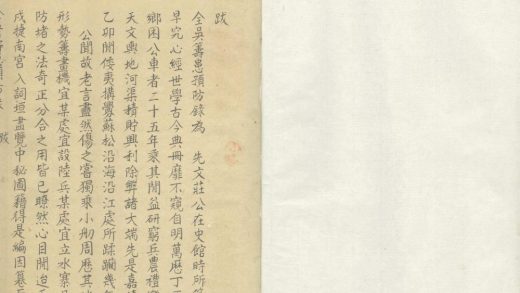 跋
全吳籌患預防錄為 先文莊公在史館時所
早究心經世學古今典冊靡不窺自明萬曆丁
鄉困公車者二十五年乘其閒益研窮兵農禮
天文輿地河渠積貯興利除弊諸大端先是嘉
乙卯間倭夷搆釁蘇松沿海沿江處所蹂躪幾
公聞故老言盡然傷之嘗獨乘小舠周歷其
形勢籌畫機宜某處宜設陸兵某處宜立水寨
防堵之法奇正分合之用皆已瞭然心目閒迨
戌捷南宮入詞垣盡覽中秘圖籍得是編因纂
跋